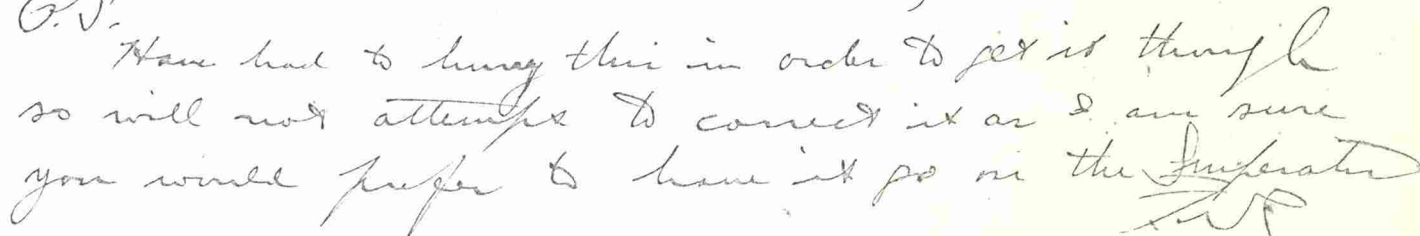 P.S.
Have had to hurry this in order to get it through
so will not attempt to correct it as I am sure
you would prefer to have it go on the Imperator